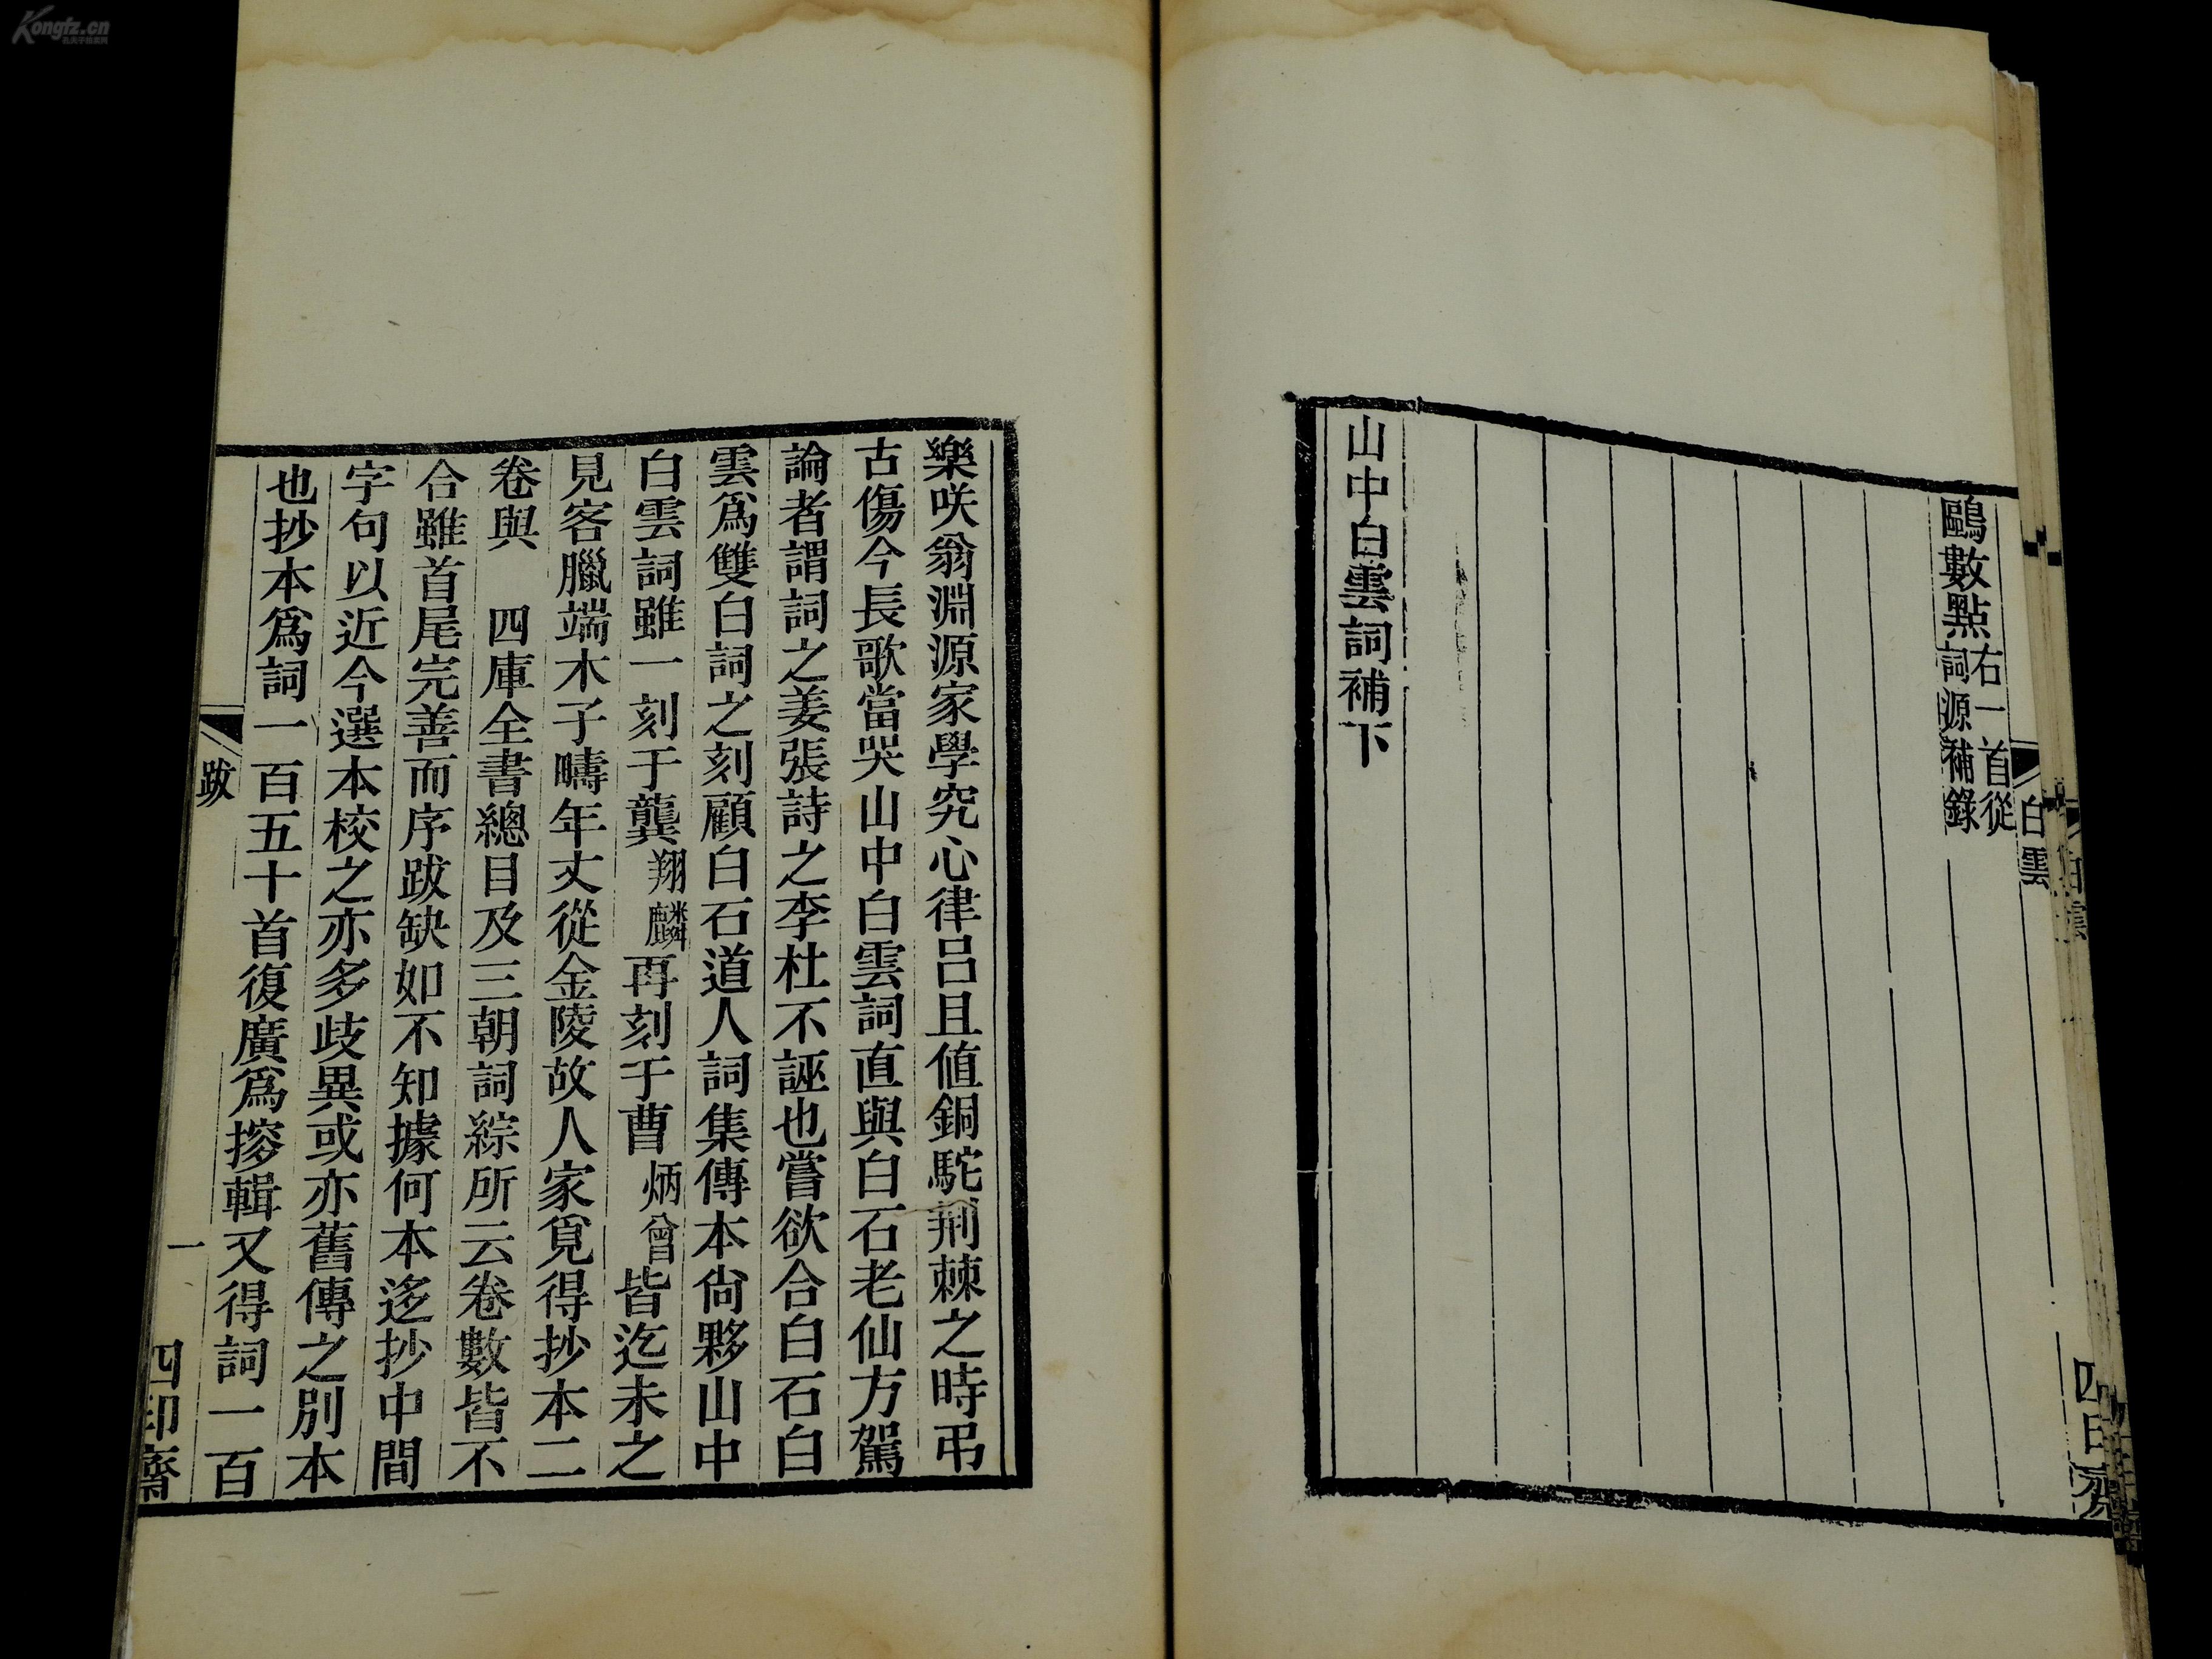 鷗數點右一首從
詞源補錄
山中白雲詞補下
白雲
樂咲翁淵源家學究心律呂且值銅駝荆棘之時弔
古傷今長歌當哭山中白雲詞直與白石老仙方駕
論者謂詞之姜張詩之李杜不誣也嘗欲合白石白
雲爲雙白詞之刻顧白石道人詞集傳本尙夥山中
白雲詞雖一刻于龔翔麟再刻于曹炳曾皆迄未之
見客臘端木子疇年丈從金陵故人家覓得抄本二
卷與 四庫全書總目及三朝詞綜所云卷數皆不
合雖首尾完善而序跋缺如不知據何本迻抄中間
字句以近今選本校之亦多歧異或亦舊傳之別本
也抄本爲詞一百五十首復廣爲搜輯又得詞一百
跋
一
四印齋
Kongfz.cn